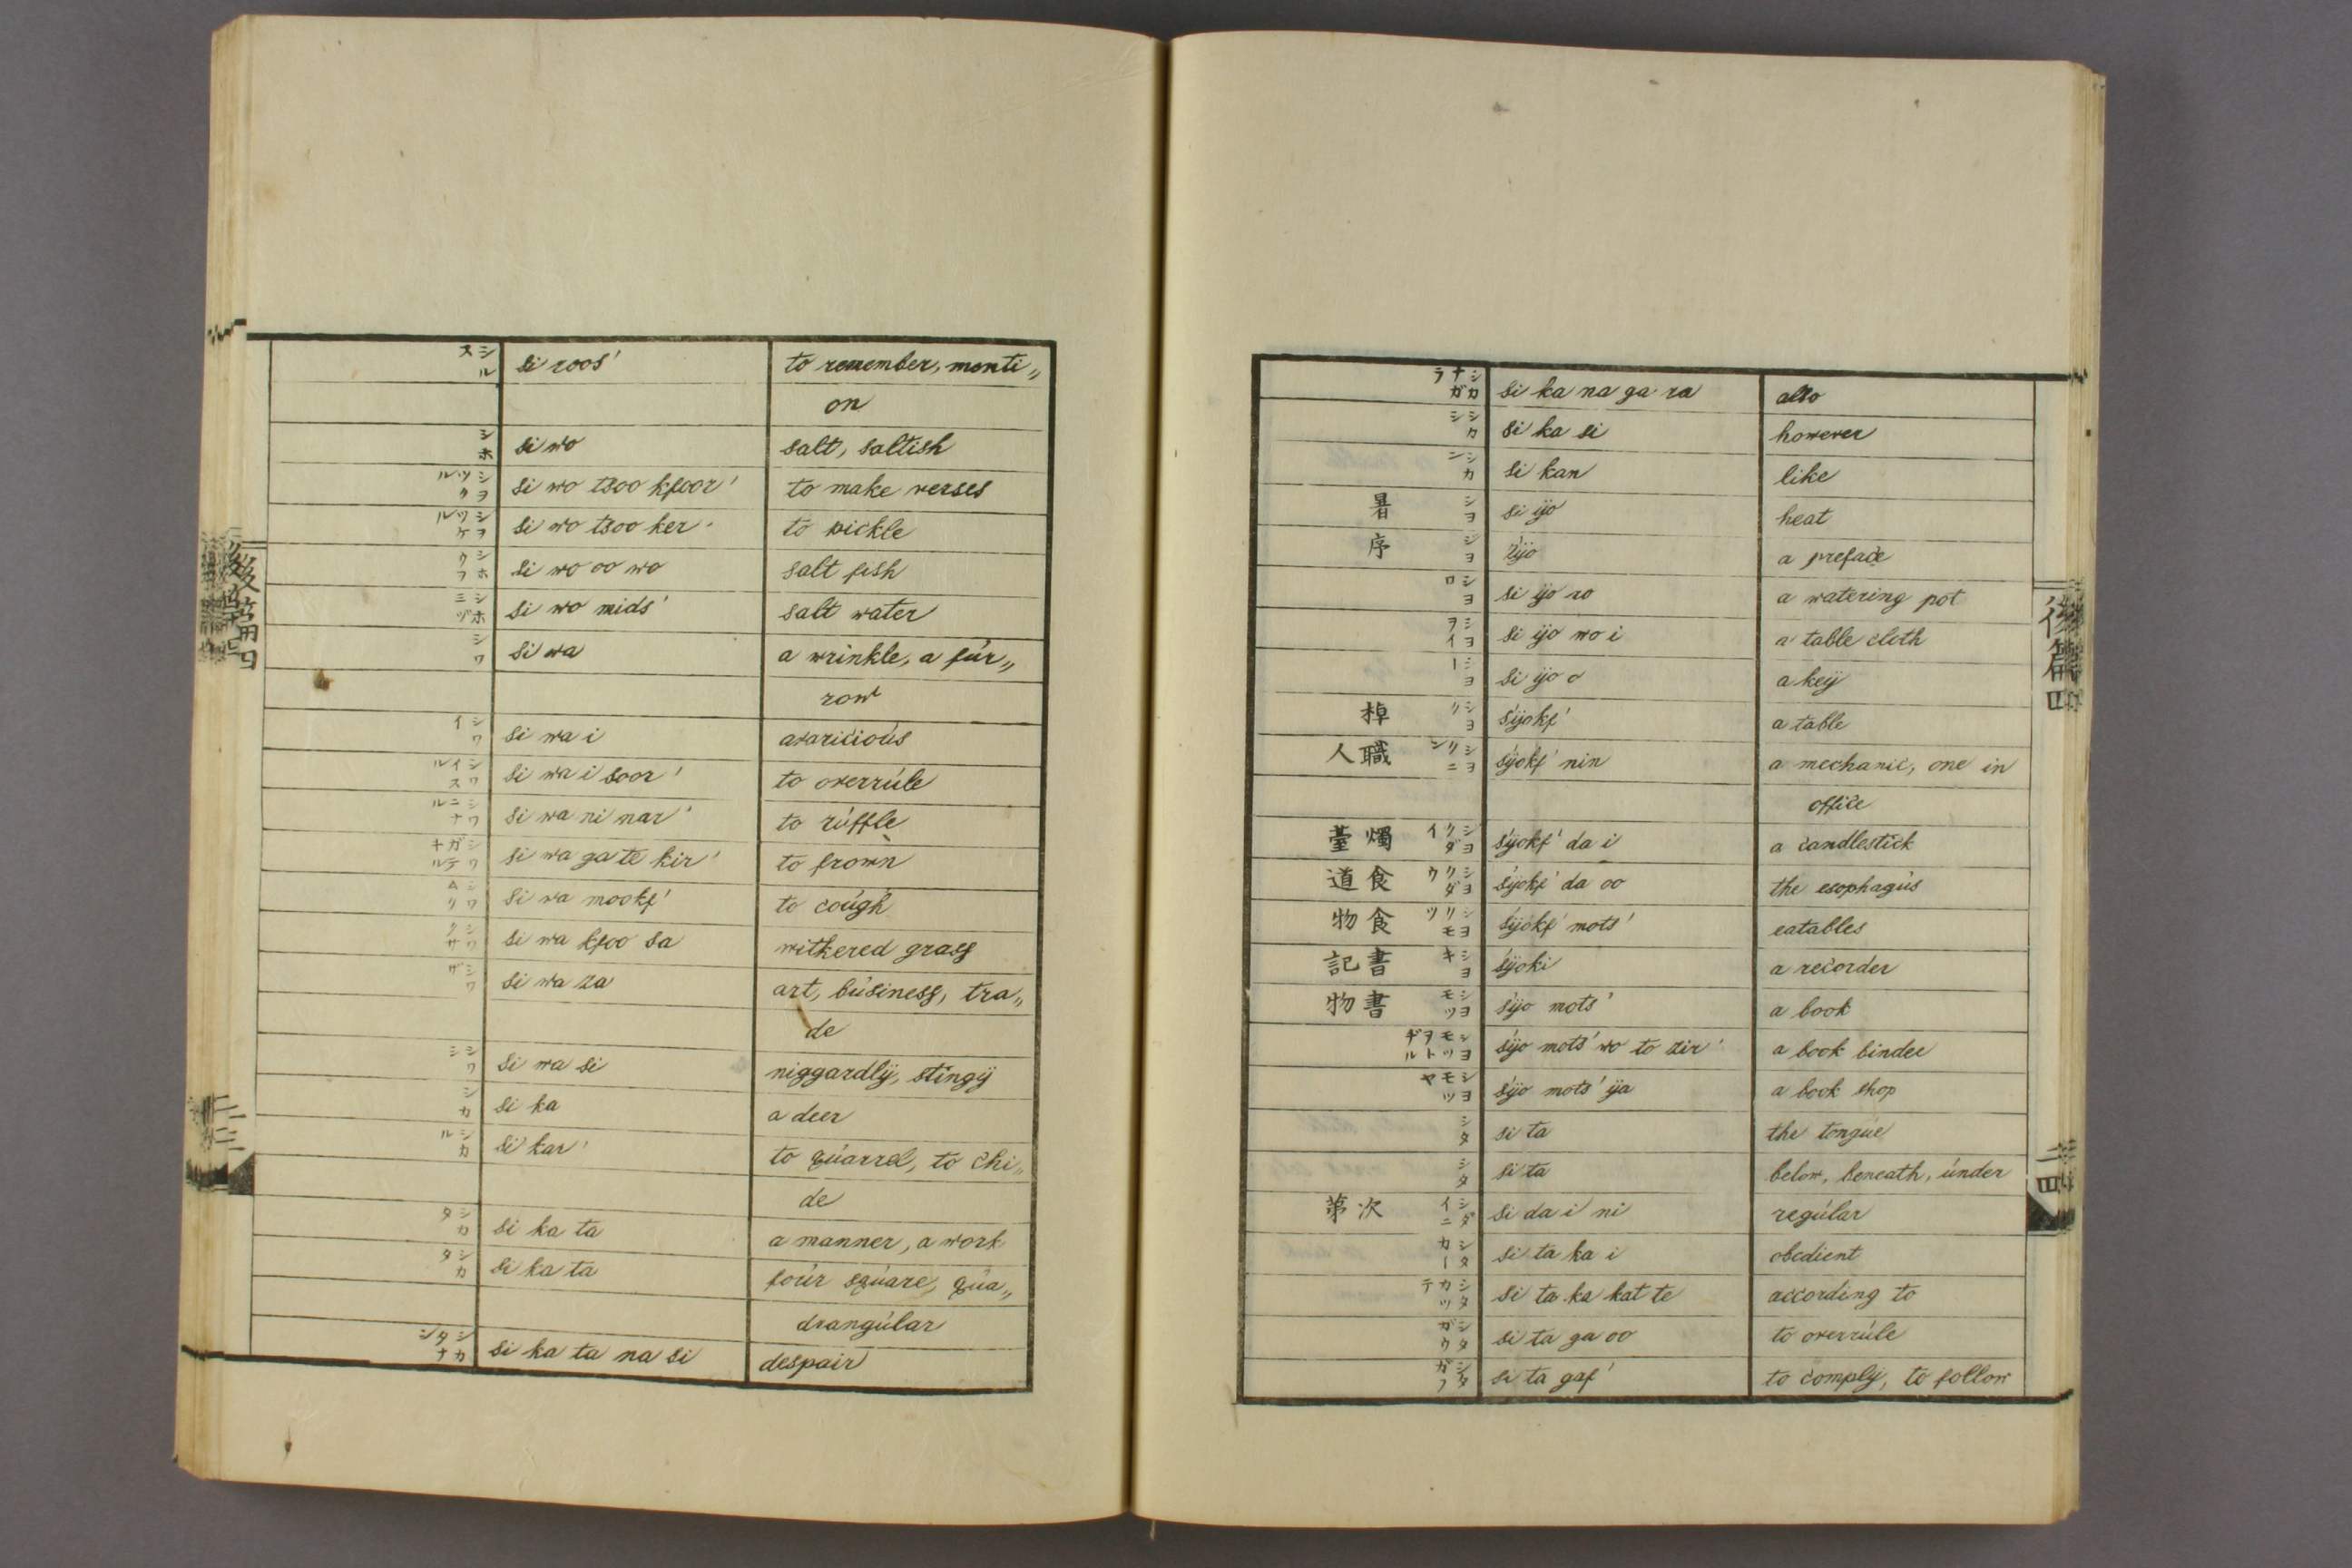 シルス si roos' to remember, menti„
on
シホ si wo salt, saltish
シヲツクル si wo tsoo kfoor' to make verses
シヲツケル si wo tsoo ker' to pickle
シホウヲ si wo oo wo salt fish
シホミヅ si wo mids' salt water
シワ si wa a wrinkle, a fúr„
row
シワイ si wa i avaricioús
シワイスル si wa i soor' to overrúle
シワニナル si wa ni nar' to rúffle
シワガテキル si wa ga te kir' to frown
シワムク si wa mookf' to coúgh
シワクサ si wa kfoo sa withered grass
シワザ si wa za art, búsiness, tra„
de
シワシ si wa si niggardlÿ, stingÿ
シカ si ka a deer
シカル si kar' to qúarrel, to chi„
de
シカタ si ka ta a manner, a work
シカタ si ka ta foúr sqúare, qúa„
drangúlar
シカタナシ si ka ta na si despair
後篇四
三
シカナガラ si ka na ga ra also
シカシ si ka si however
シカン si kan like
暑 シヨ si ÿo heat
序 ジヨ z'ÿo a preface
シヨロ si ÿo ro a watering pot
シヨヲイ si ÿo wo i a table cloth
シヨー si ÿo o a keÿ
棹 シヨク s'ÿokf' a table
人職 シヨクニン s'ÿokf' nin a mechanic, one in
office
臺燭 シヨクダイ s'ÿokf' da i a candlestick
道食 シヨクダウ s'ÿokf' da oo the esophagús
物食 シヨクモツ s'ÿokf' mots' eatables
記書 シヨキ s'ÿoki a recorder
物書 シヨモツ s'ÿo mots' a book
シヨモツヲトヂル s'ÿo mots' wo to zir' a book binder
シヨモツヤ s'ÿo mots' ÿa a book shop
シタ si ta the tongúe
シタ si ta below, beneath, únder
第次 シダイニ si da i ni regúlar
シタカー si ta ka i obedient
シタカツテ si ta ka kat te according to
シタガウ si ta ga oo to overrúle
シタガフ si ta gaf' to complÿ, to follow
後篇四
三四